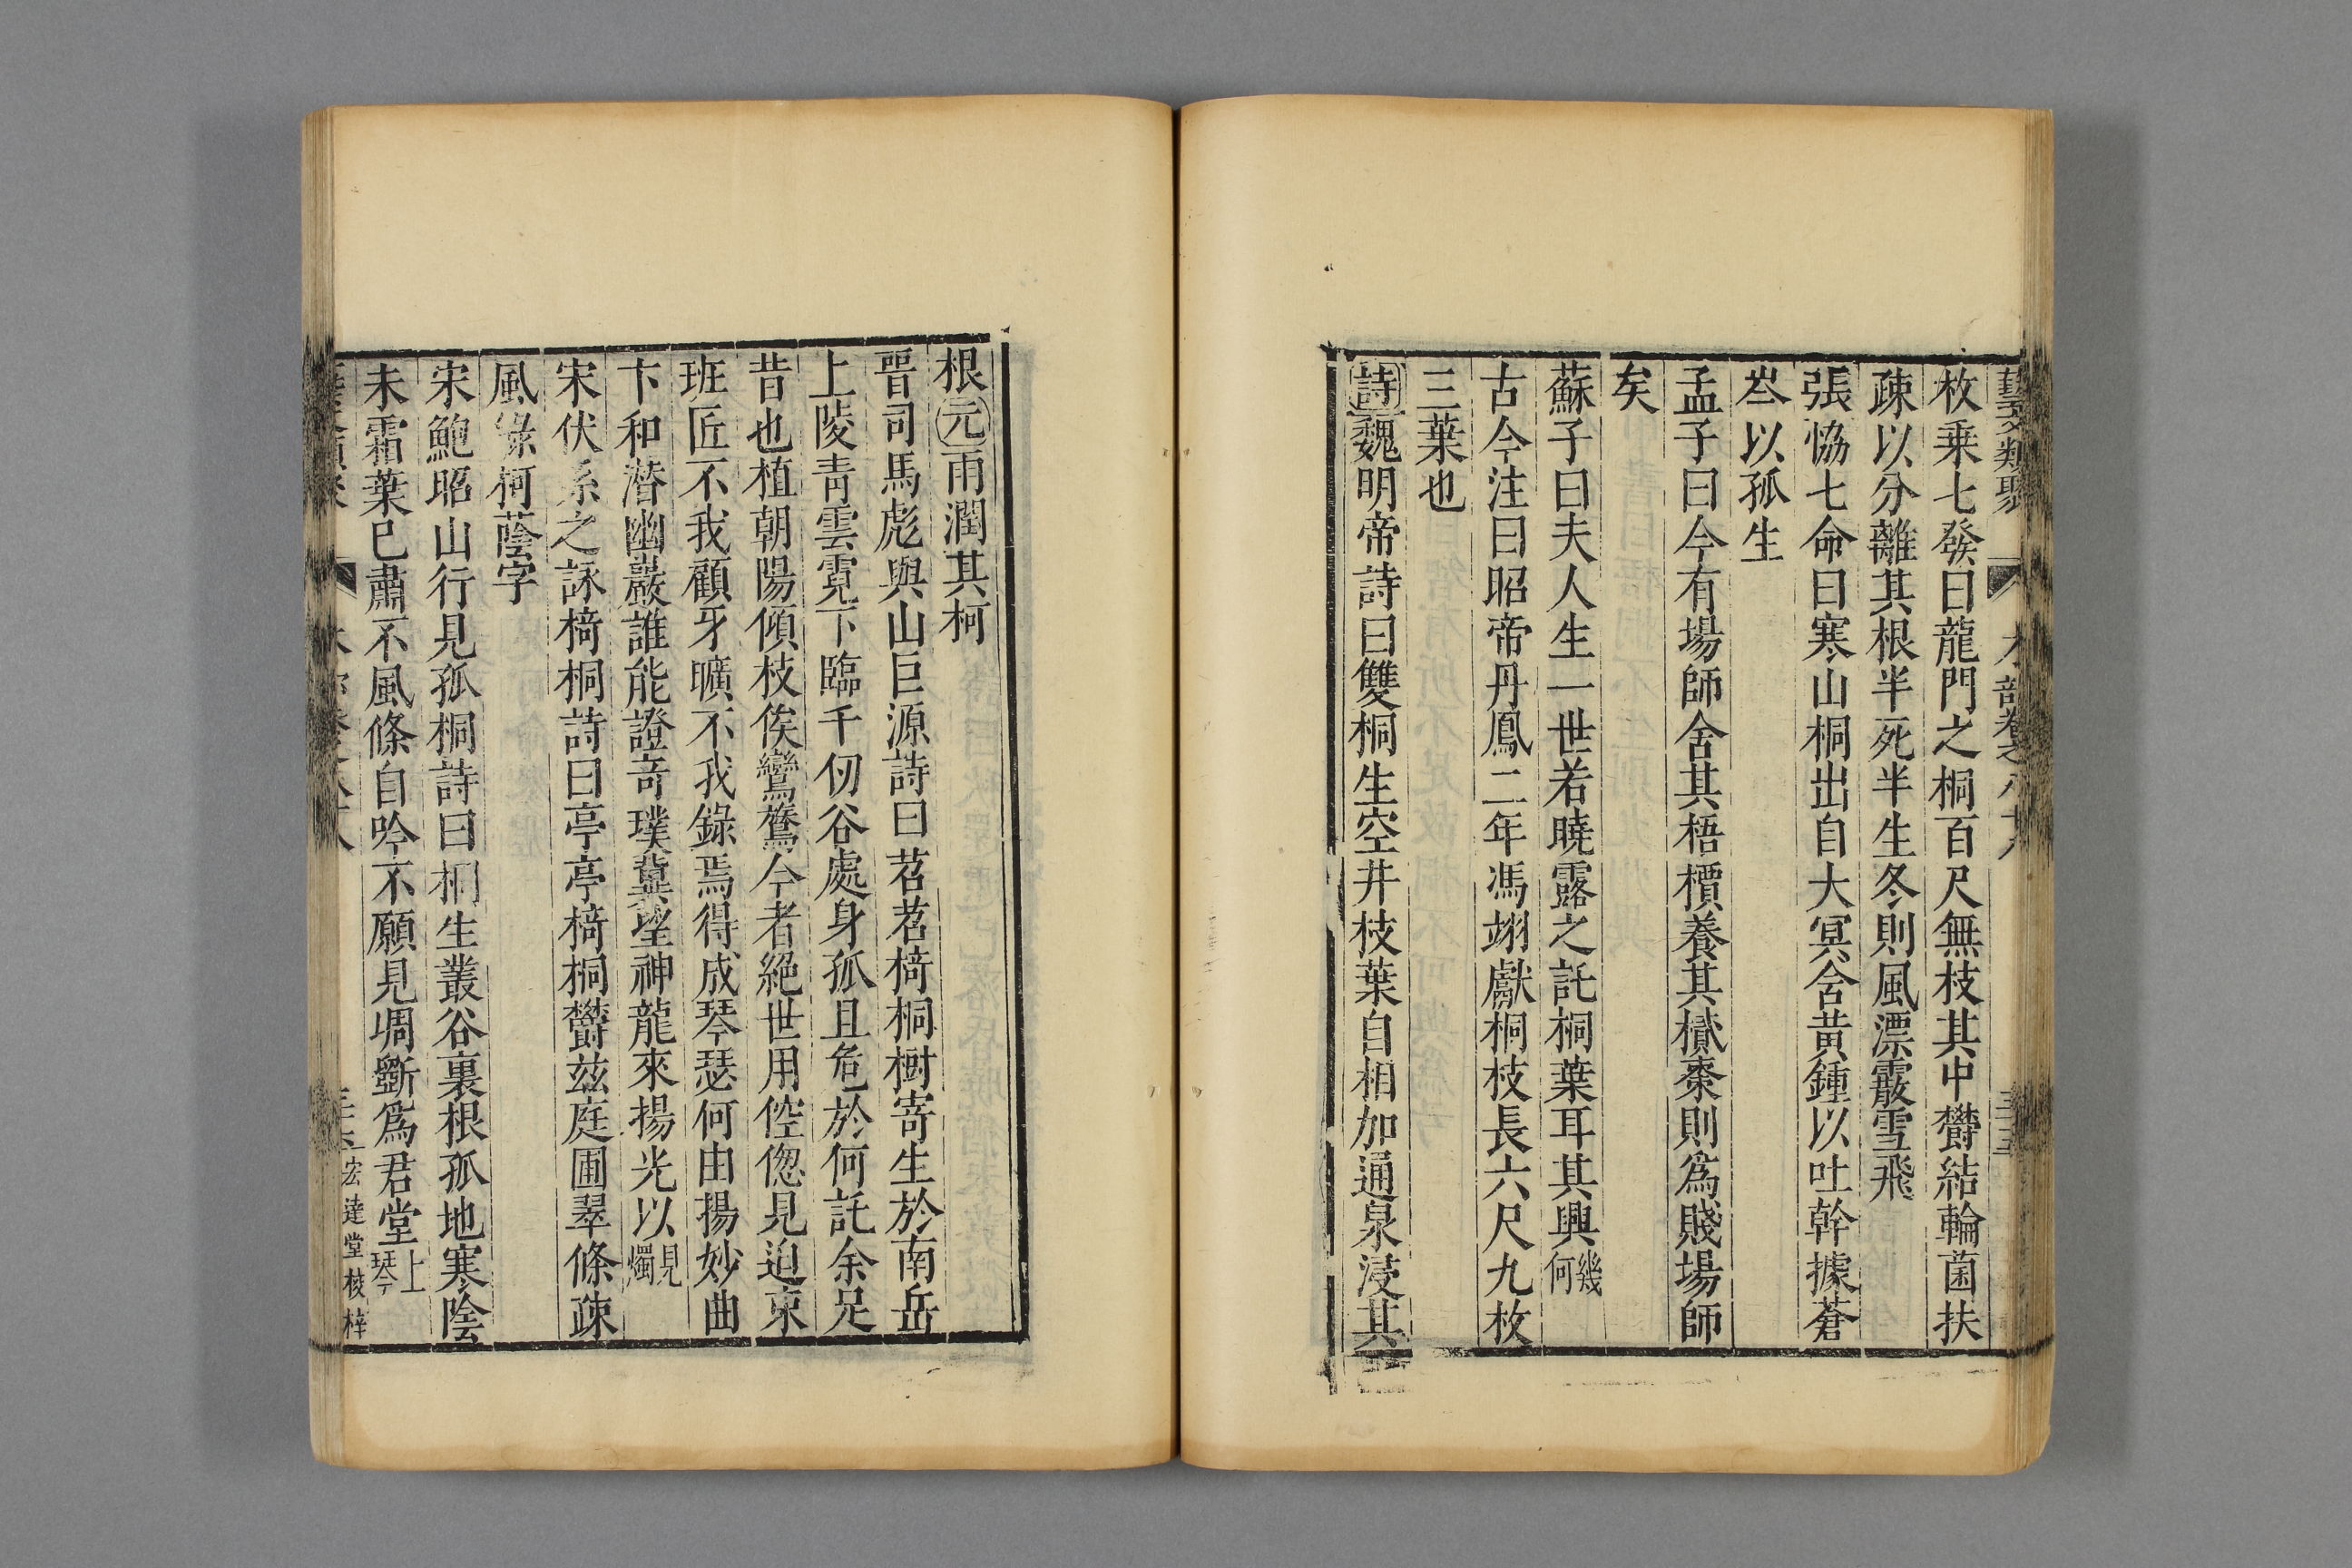 藝文類聚 木部卷之八十八 三十五
枚乗七發曰龍門之桐百尺無枝其中欝結輪菌扶
疎以分離其根半死半生冬則風漂霰雪飛
張恊七命曰寒山桐出自大冥含黃鍾以吐幹據蒼
岑以孤生
孟子曰今有場師舍其梧檟養其樲棗則為賤場師
矣
蘇子曰夫人生一世若曉露之託桐葉耳其興幾何
古今注曰昭帝丹鳳二年馮翊獻桐枝長六尺九枚
三葉也
詩魏明帝詩曰雙桐生空井枝葉自相加通泉浸其
根元雨潤其柯
晋司馬彪與山巨源詩曰苕苕椅桐樹寄生於南岳
上陵青雲霓下臨千仞谷處身孤且危於何託余足
昔也植朝陽傾枝俟鸞鷟今者絕世用倥偬見迫束
班匠不我顧牙曠不我錄焉得成琴瑟何由揚妙曲
卞和潜幽巖誰能證奇璞冀望神龍來揚光以見燭
宋伏系之詠椅桐詩曰亭亭椅桐欝兹庭圃翠條疎
風綠柯蔭宇
宋鮑昭山行見孤桐詩曰桐生叢谷裏根孤地寒陰
未霜葉已肅不風條自吟不願見凋斵為君堂上琴
宏達堂校梓